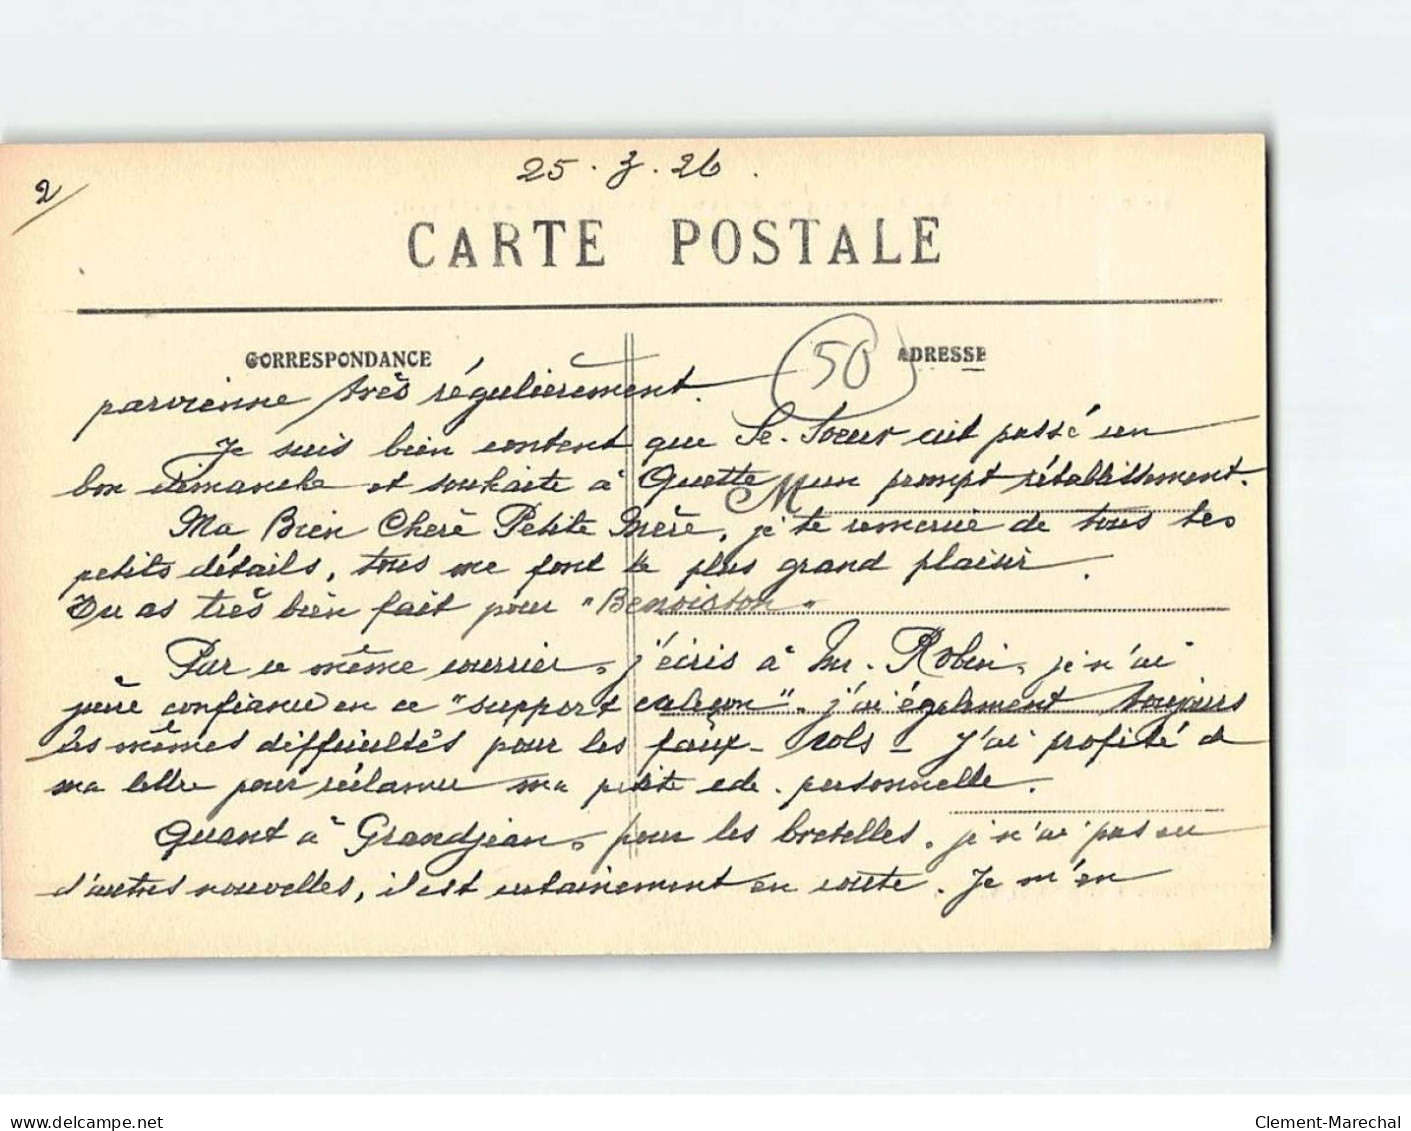 2/
25. 3. 26.
CARTE POSTALE
CORRESPONDANCE
50
ADRESSE
parvienne très régulièrement.
Je suis bien content que Se. Soeur ait passé un
bon dimanche et souhaite à Quette un prompt rétablissement.
M
Ma Bien Chère Petite Mère, je te remercie de tous tes
petits détails, tous me font le plus grand plaisir.
Tu as très bien fait pour "Benoiston"
Par ce même courrier, j'écris à Mr. Robin, je n'ai
guère confiance en ce "support caleçon". j'ai également toujours
les mêmes difficultés pour les faux-cols - J'ai profité de
ma lettre pour réclamer ma petite cde. personnelle.
Quant à Grandjean, pour les bretelles, je n'ai pas eu
d'autres nouvelles, il est certainement en route. Je m'en
delcampe.net
Clement-Marechal